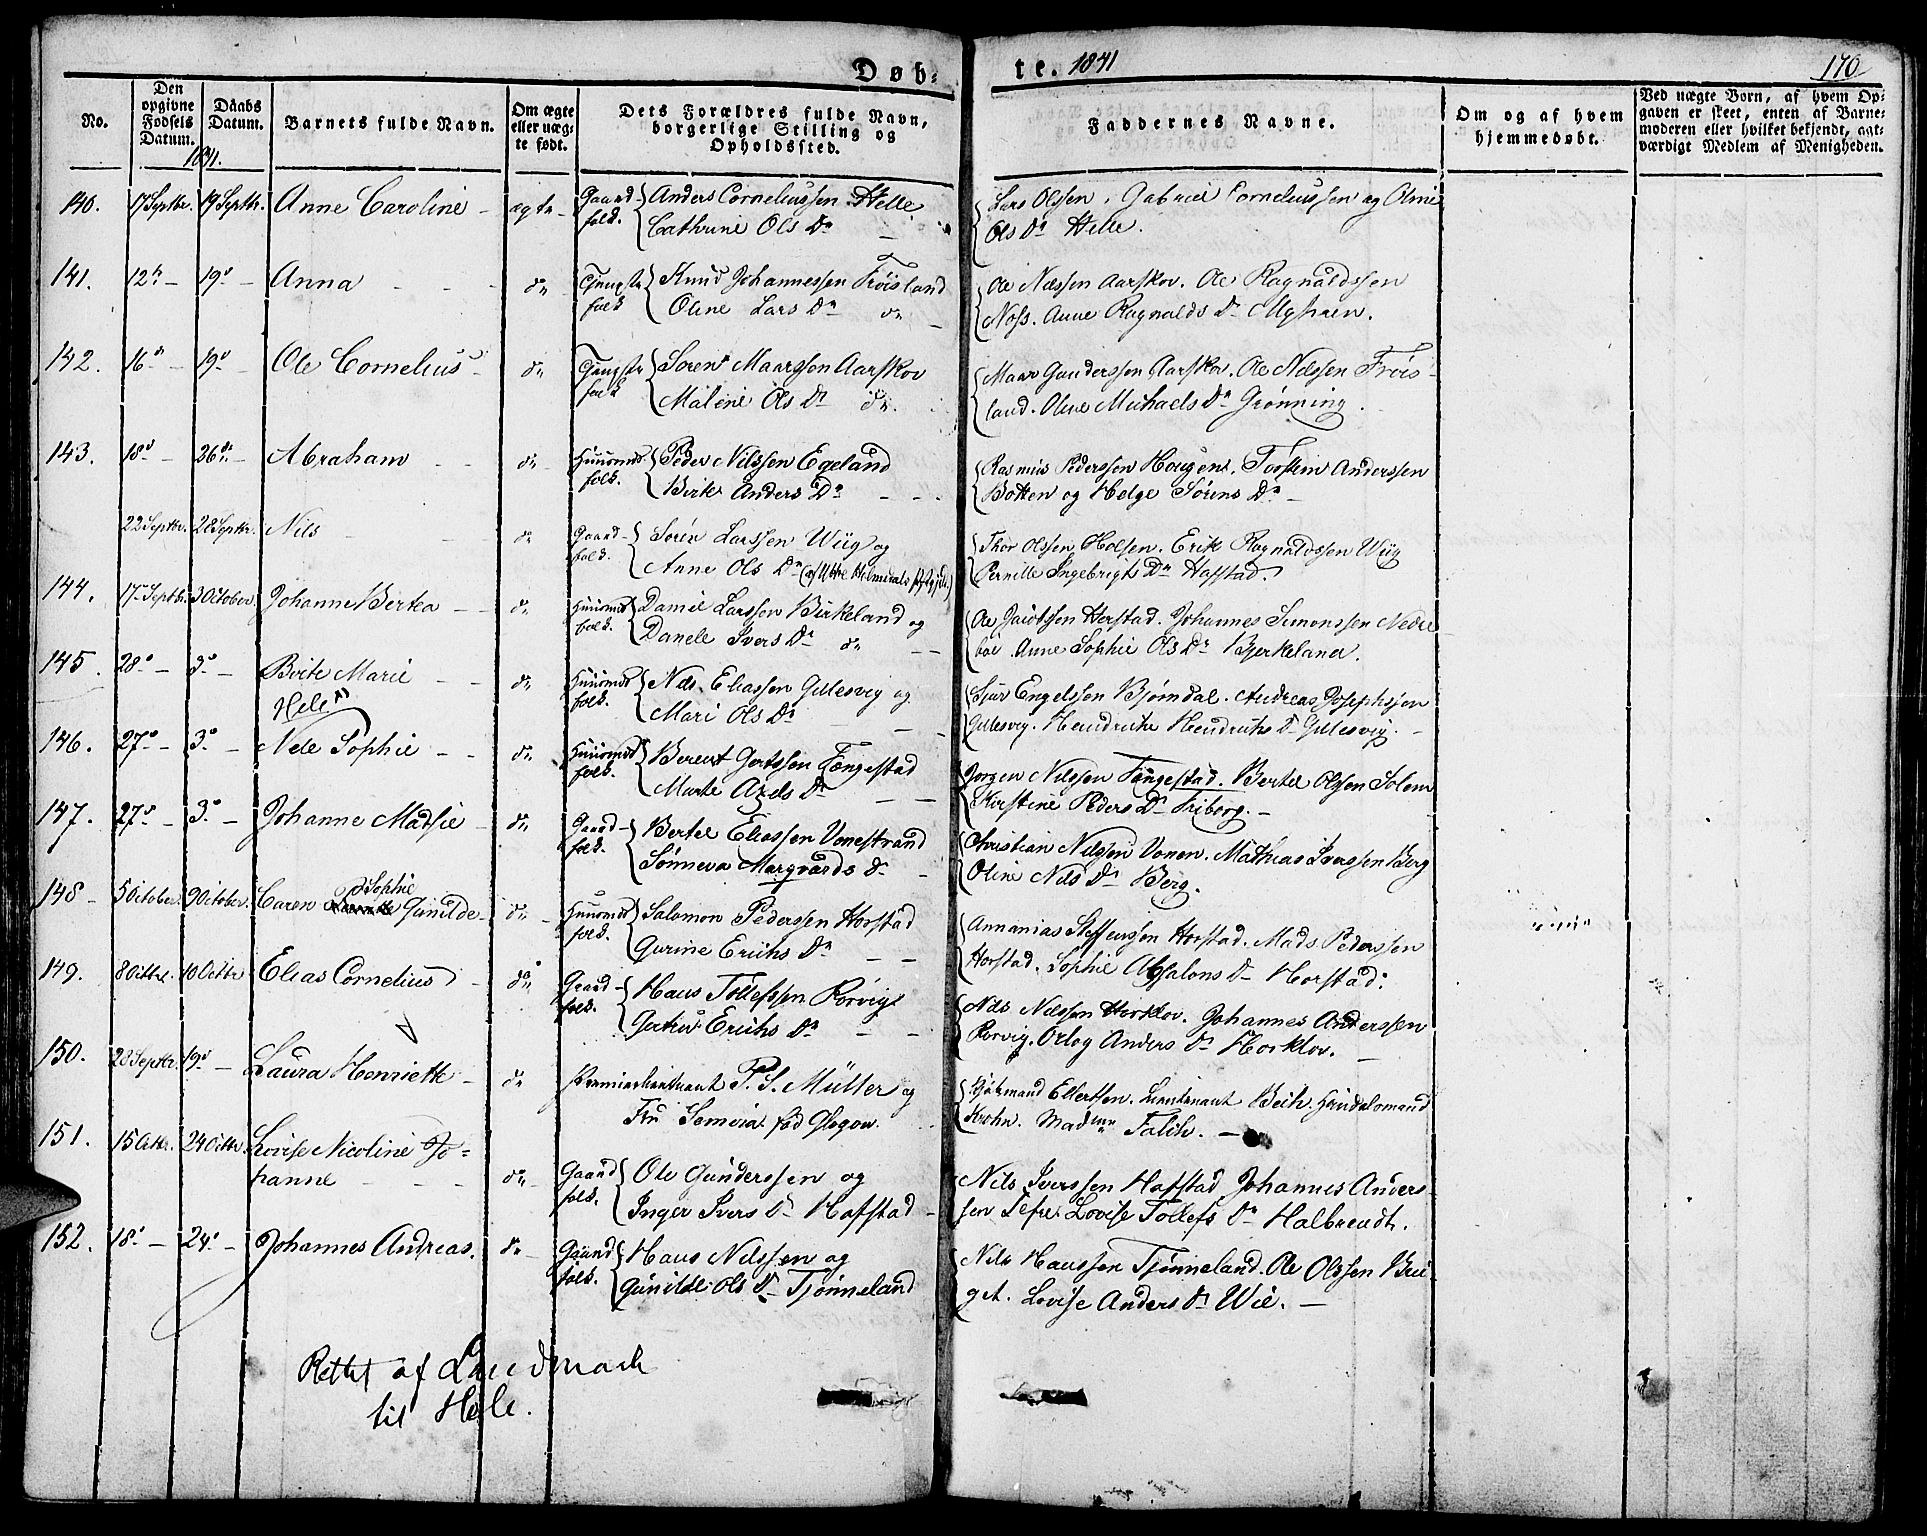 Døb=
te. 1841
170
No.
Den opgivne Fødsels Datum.
Daabs Datum.
1841.
Barnets fulde Navn.
Om ægte eller uæg= te født.
Dets Forældres fulde Navn, borgerlige Stilling og Opholdssted.
Faddernes Navne.
Om og af hvem hjemmedøbt.
Ved uægte Børn, af hvem Op= gaven er skeet, enten af Barne= moderen eller hvilket bekjendt, agt= værdigt Medlem af Menigheden.
140. 17 Septbr. 19 Septbr. Anne Caroline - ægte - Gaard- folk. Anders Corneliussen Helle
Cathrine Ols Dr -
Lars Olsen, Gabriel Corneliussen og Oline
Ols Dr Helle.
141. 12te - 19de - Anna - - - do Knud Johannessen Frøisland
Oline Lars Dr do -
Ole Nilssen Aarskov. Ole Ragnaldssen
Noss. Anne Ragnalds Dr Myhren.
142. 16de - 19de - Ole Cornelius - do Søren Maarssen Aarskov
Maline Ols Dr do.
Maar Gunderssen Aarskov. Ole Nilssen Frøis-
land. Oline Michaels Dr Grønning.
143. 18de - 26de - Abraham - - do - Huusmds folk. Peder Nilssen Egeland
Birte Anders Dr - - -
Rasmus Pederssen Hougen. Torsten Anderssen
Botten og Helge Sørens Dr -
22 Septbr. 28 Septbr. Nils - - - do Gaard- folk. Søren Larssen Wiig og
Anne Ols Dr
Thor Olssen Holsen. Erik Ragnaldssen Wiig
Pernille Ingebrigts Dr Hafstad.
144. 17 Septbr. 3 October. Johanne Bertea - - do Huusmds folk. Daniel Larssen Birkeland og
Danele Ivers Dr do - -
Ole Jacobssen Herstad. Johannes Simonssen Nedre
bøe. Anne Sophie Ols Dr Bjerkeland.
145. 28de - 3de - Birte Marie - - do Huusmds folk. Nils Eliassen Gillesvig og
Mari Ols Dr - -
Sjur Engelssen Bjørndal. Andreas Josephssen
Gillesvig. Hendrikke Hendriks Dr Gillesvig. -
Hele
146. 27de - 3de - Nele Sophie - - do Huusmds folk. Berent Gertssen Tongestad
Marte Axels Dr - -
Jørgen Nilssen Tongestad. Bertel Olssen Solem
Kirstine Peders Dr Friborg. -
147. 27de - 3de - Johanne Madsie - do Gaard- folk. Bertel Eliassen Vonestrand
Sønneva Margvards Dr -
Christian Nilssen Vonen. Mathias Iverssen Berg
Oline Nils Dr Berg.
148 - 5 October. 9 October. Caren Sophie Gunilde - do - Huusmds folk. Salomon Pederssen Horstad
Gurine Erichs Dr - -
Annanias Steffenssen Horstad. Mads Pederssen
Horstad. Sophie Absalons Dr Horstad.
149. 8 Octbr. 10 Octbr Elias Cornelius - do Gaard- folk. Hans Tollefssen Rorvig
Erichs Dr - -
Nils Nilssen Horklov. Johannes Anderssen
Rorvig. Anders Dr Horklov. -
150. 28 Septbr. 19de - Laura Henriette - do Premierlieutnant P. S. Müller og
Fru fød Glogou.
Ellertsen. Lieutenant Beck. Handelsmand
Krohn. Madme Falck. -
151. 15 Octbr. 24 Octbr. Lovise Nicoline Jo=
hanne - - - do - Gaard folk. Ole Gunderssen og
Inger Ivers Dr Hafstad -
Nils Iverssen Hafstad Johannes Anders-
sen Tefre. Lovise Tollefs Dr Halbrendt.
152. 18de - 24de - Johannes Andreas. do - Gaard folk. Hans Nilssen og
Gunilde Ols Dr Tjønneland
Nils Hanssen Tjønneland. Ole Olssen Brü-
get. Lovise Anders Dr Wie. -
Rettet af Landmark
til Hele.